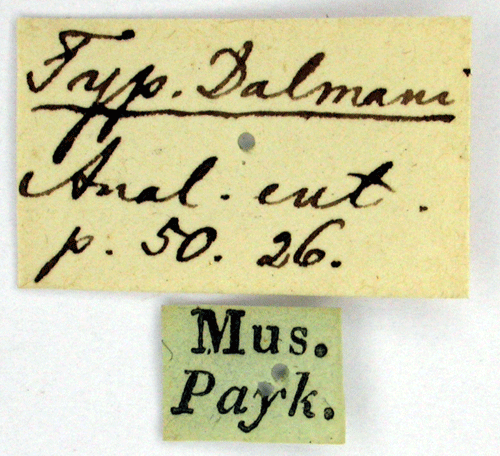 Typ. Dalmani
Anal. ent.
p. 50. 26.
Mus.
Payk.